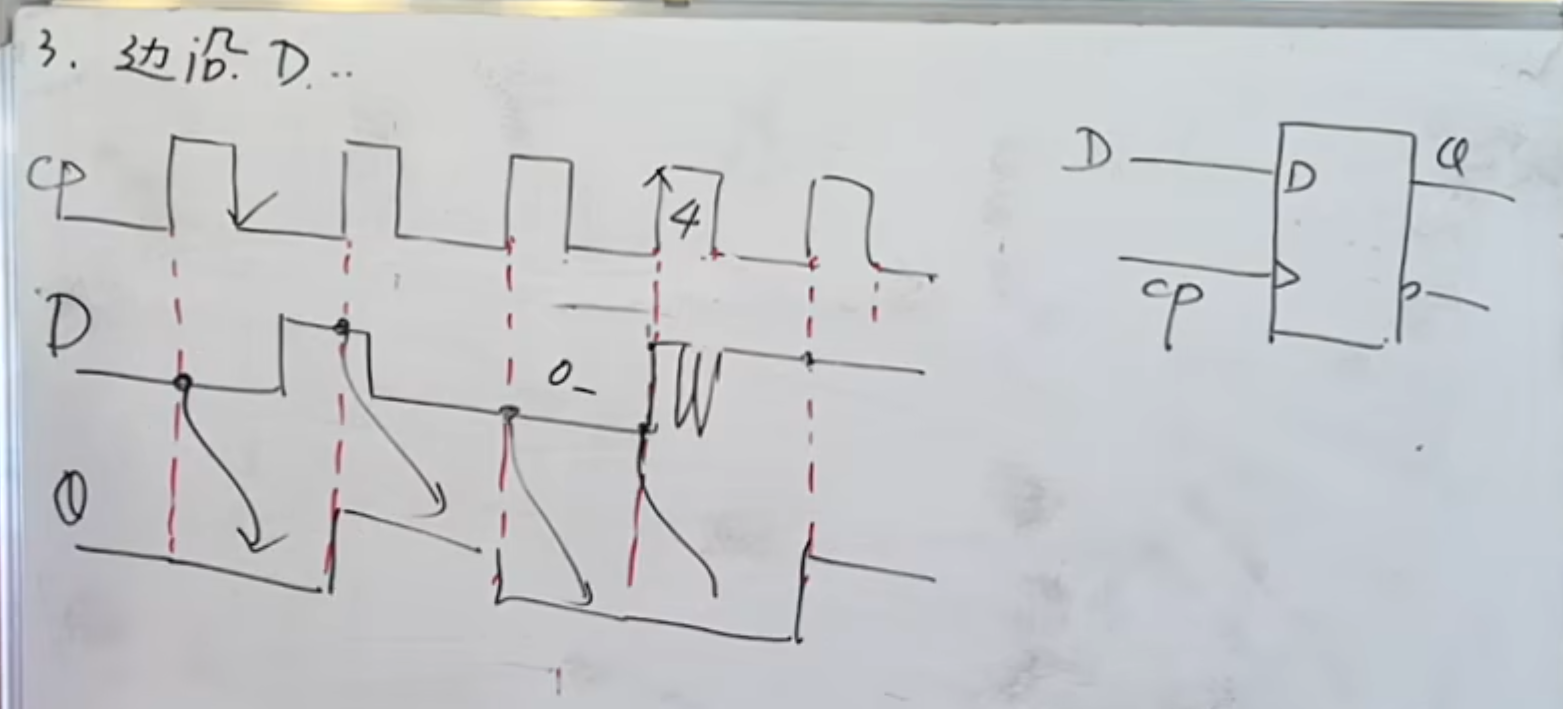 3. 边沿 D...
CP
4
D
0
Q
D
D
Q
CP